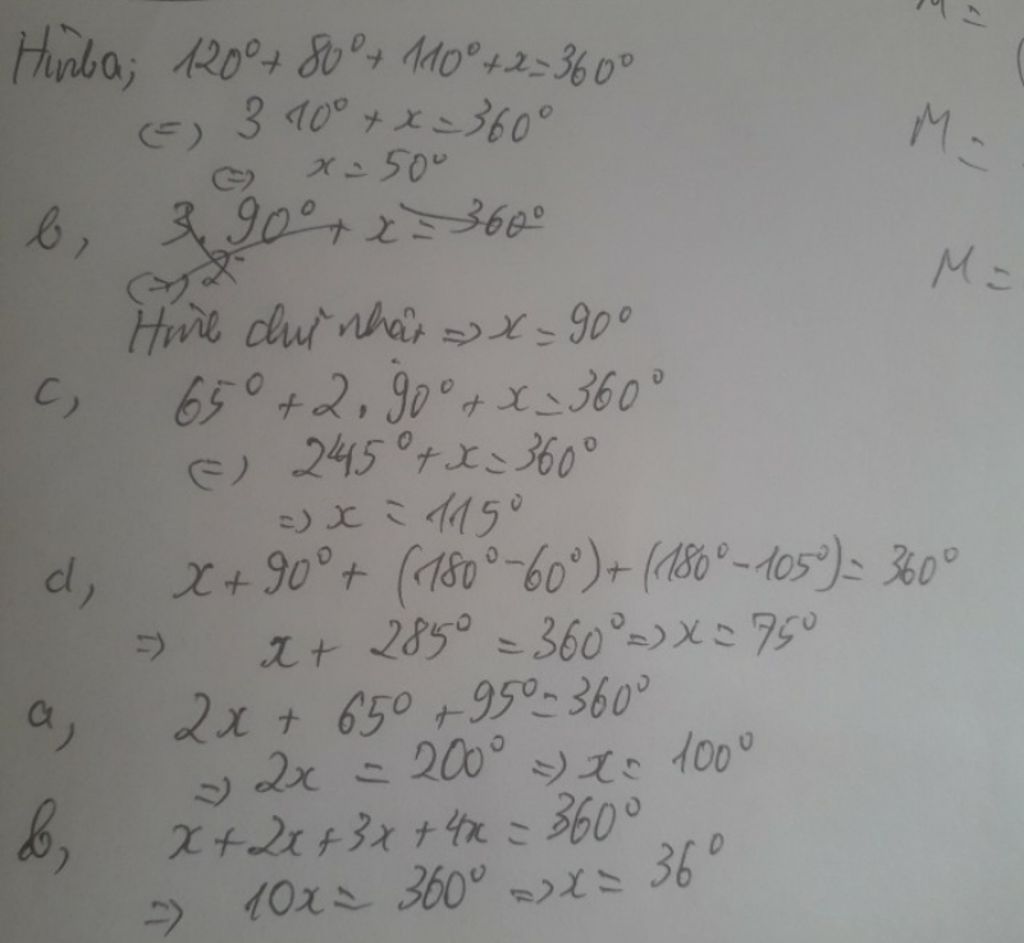 M =
Hình a; 120° + 80° + 110° + x = 360°
(=) 310° + x = 360°
(=) x = 50°
M =
b, 3. 90° + x = 360°
(=) 2
M =
Hình chữ nhật => x = 90°
c, 65° + 2. 90° + x = 360°
(=) 245° + x = 360°
=> x = 115°
d, x + 90° + (180° - 60°) + (180° - 105°) = 360°
=> x + 285° = 360° => x = 75°
a, 2x + 65° + 95° = 360°
=> 2x = 200° => x = 100°
b, x + 2x + 3x + 4x = 360°
=> 10x = 360° => x = 36°